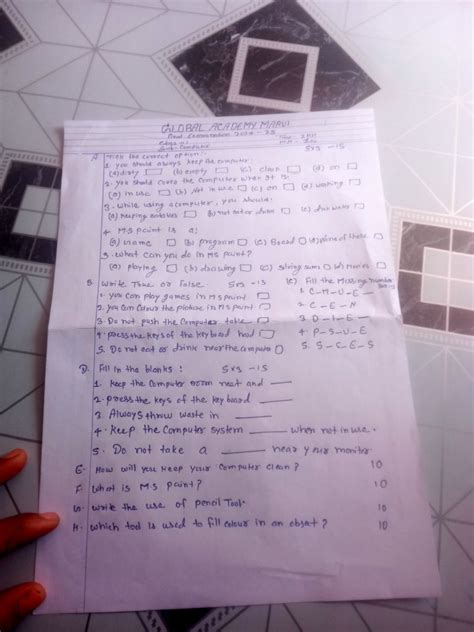 GLOBAL ACADEMY MARUI
Final Examination 2024 - 25
Class
Sub: Computer
A. Tick the correct option:- 5x3 -15
1. you should always keep the computer:
(a) dirty (b) empty (c) clean (d) on
2. you should cover the computer when it is:
(a) in use (b) Not in use (c) on (d) working
3. While using a computer, you should:
(a) keeping (b) not eat or drink (c) water
4. M.S paint is a:
(a) Game (b) program (c) Board (d) None of these
5. What can you do in M.S paint?
(a) playing (b) drawing (c) sums (d) Movies
B. Write True or False 5x3 -15
1. you can play games in M.S paint
2. you can colour the picture in M.S paint
3. Do not push the Computer table
4. press the keys of the key board hard
5. Do not eat or drink near the computer
(C) Fill the Missing
1. C-M-U-E-
2. C-E-N
3. D-I-E-
4. P-S-U-E
5. S-C-E-S
D. Fill in the blanks: 5x3 -15
1. keep the Computer room neat and ____
2. press the keys of the key board ____
3. Always throw waste in ____
4. Keep the Computer system ____ when not in use.
5. Do not take a ____ near your monitor
E. How will you keep your Computer clean? 10
F. What is M.S paint? 10
G. Write the use of pencil Tool. 10
H. Which tool is used to fill colour in an object? 10